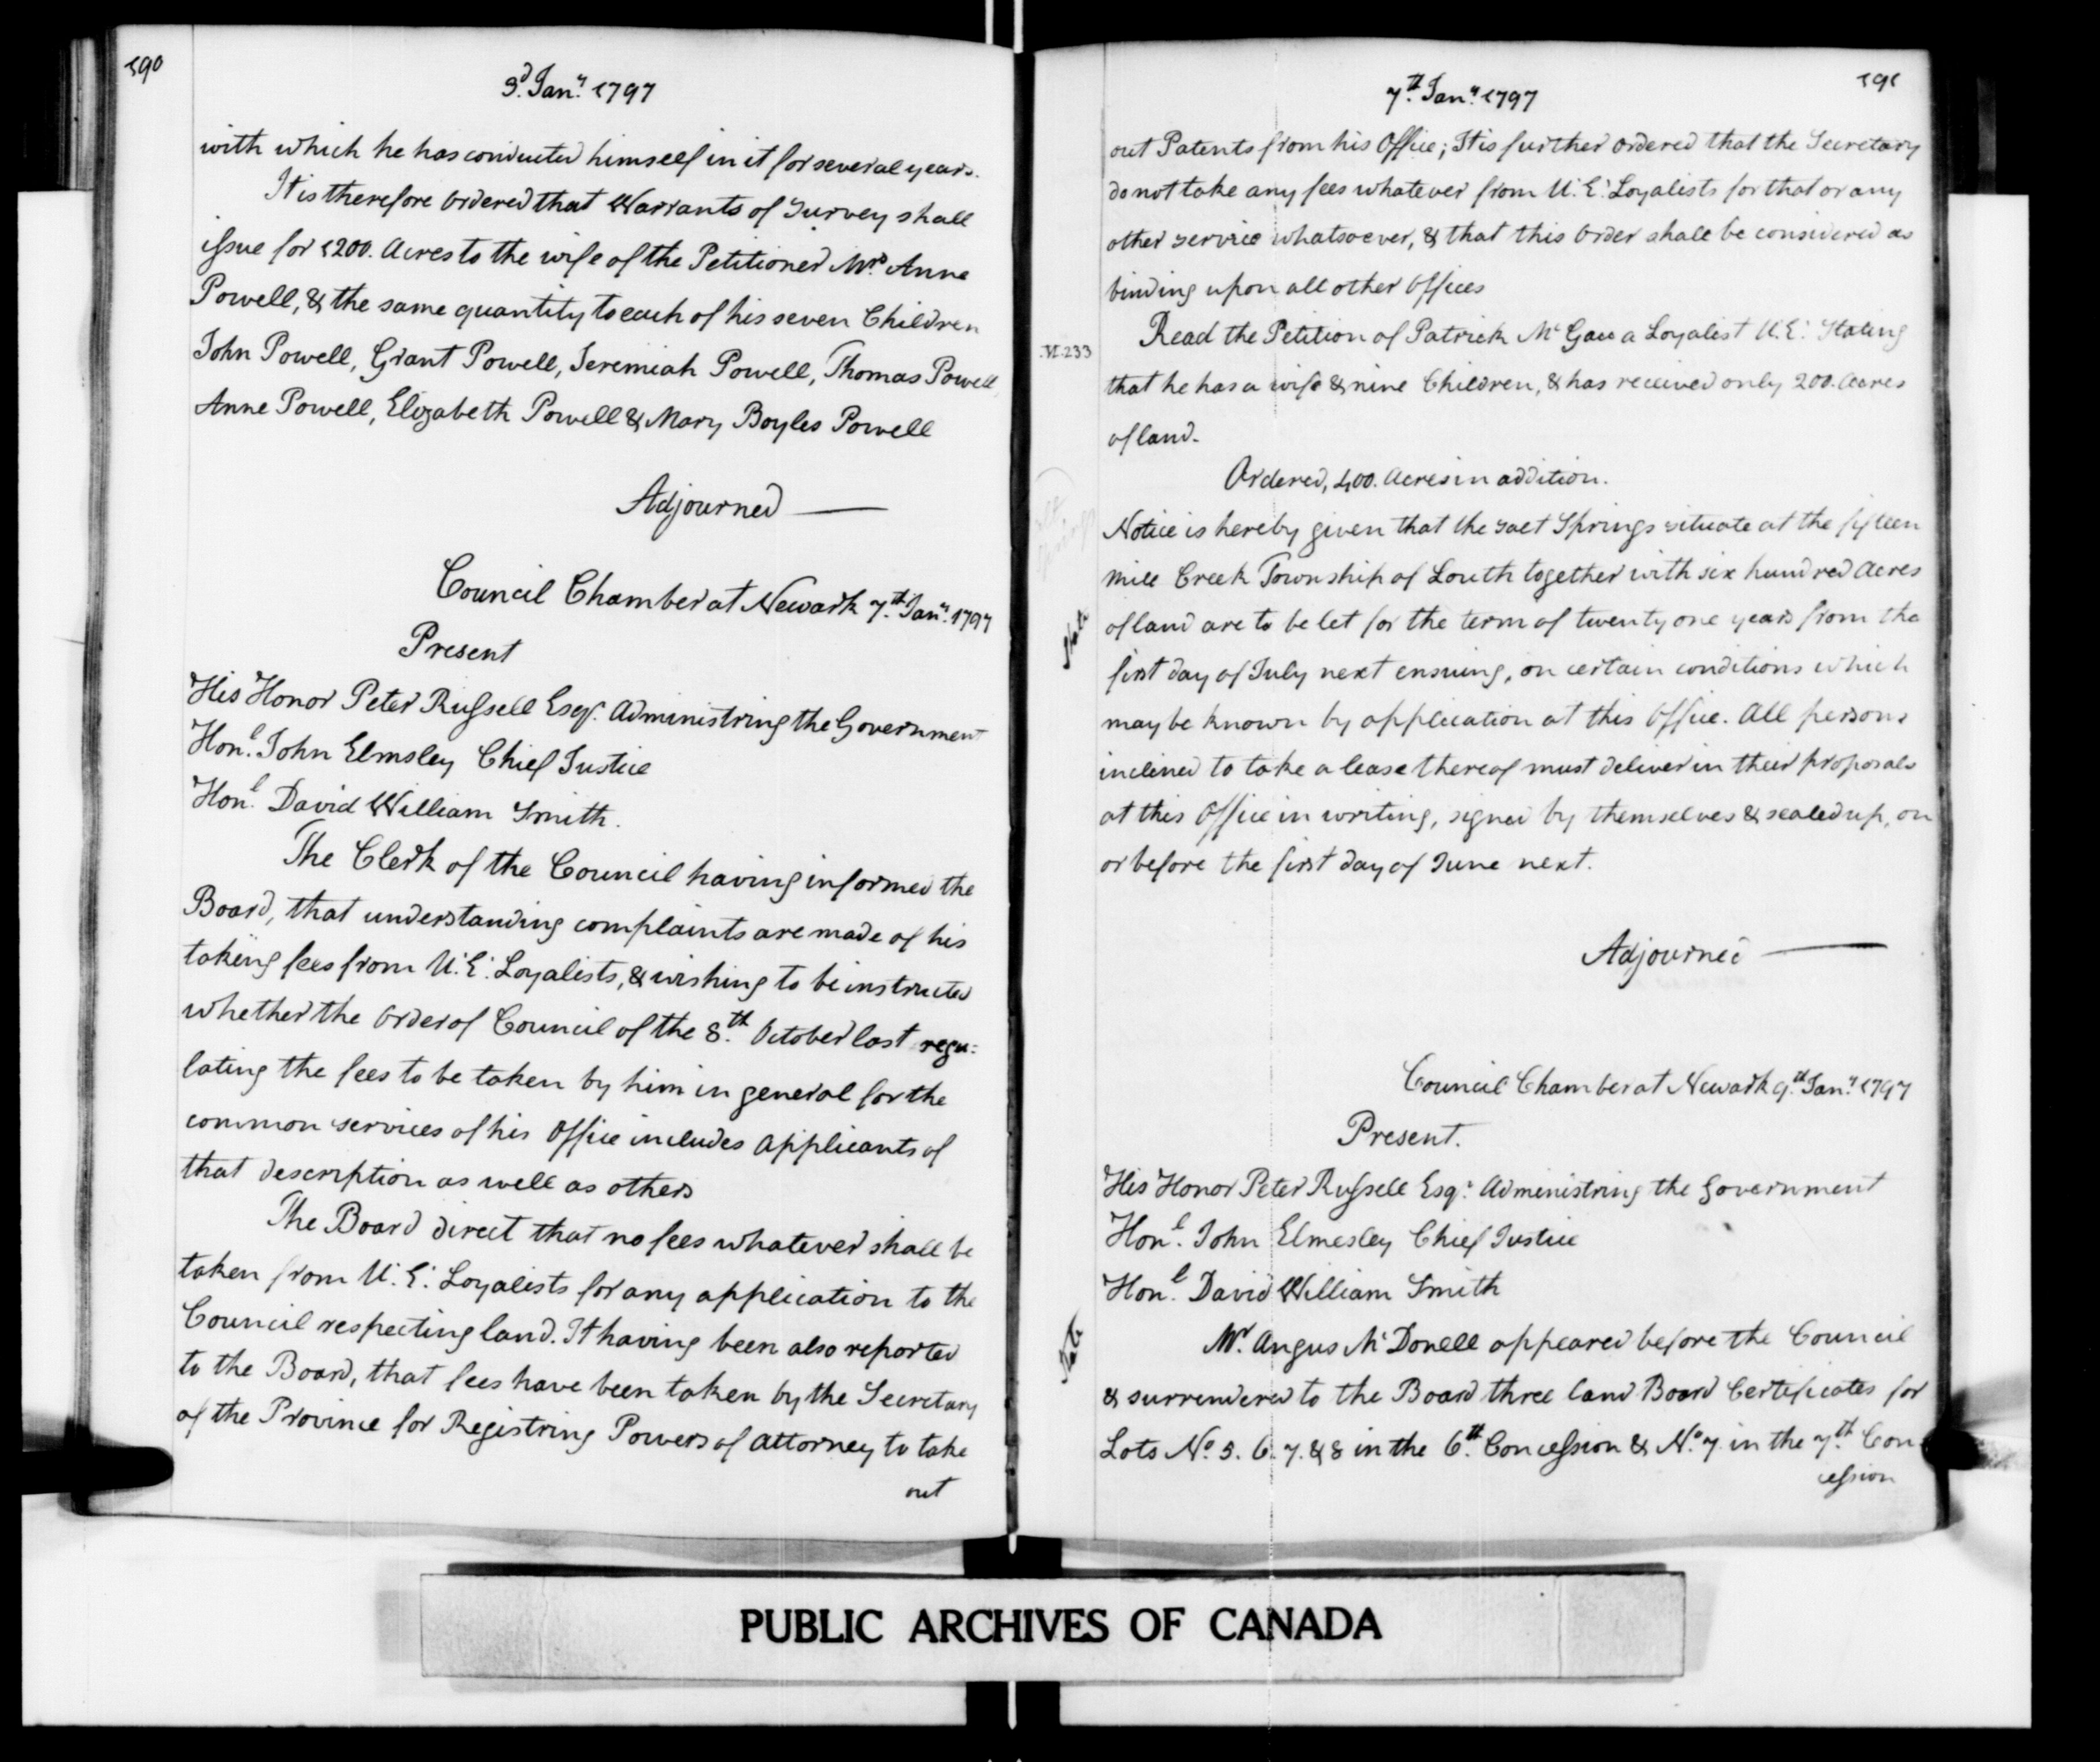 190
3.d Jan.y 1797
with which he has conducted himself in it for several years.
It is therefore Ordered that Warrants of Survey shall
issue for 1200. Acres to the wife of the Petitioner Mrs. Anne
Powell, & the same quantity to each of his seven Children
John Powell, Grant Powell, Jeremiah Powell, Thomas Powell,
Anne Powell, Elizabeth Powell & Mary Boyles Powell
Adjourned —
Council Chamber at Newark 7.th Jan.y 1797
Present
His Honor Peter Russell Esqr. Administring the Government
Hon.l John Elmsley Chief Justice
Hon.l David William Smith.
The Clerk of the Council having informed the
Board, that understanding complaints are made of his
taking fees from U.E. Loyalists, & wishing to be instructed
whether the Order of Council of the 8.th October last regu:
lating the fees to be taken by him in general for the
common services of his Office includes Applicants of
that description as well as others
The Board direct that no fees whatever shall be
taken from U.E. Loyalists for any application to the
Council respecting land. It having been also reported
to the Board, that fees have been taken by the Secretary
of the Province for Registring Powers of Attorney to take
out
191
7.th Jan.y 1797
out Patents from his Office; It is further ordered that the Secretary
do not take any fees whatever from U.E. Loyalists for that or any
other service whatsoever, & that this Order shall be considered as
binding upon all other Offices
VI.233
Read the Petition of Patrick Mc Gau a Loyalist U.E. Stating
that he has a wife & nine Children, & has received only 200. Acres
of land.
Ordered, 400. Acres in addition.
Notice is hereby given that the salt Springs situate at the fifteen
mile Creek Township of Louth together with six hundred Acres
of land are to be let for the term of twenty one years from the
first day of July next ensuing, on certain conditions which
may be known by application at this Office. All persons
inclined to take a lease thereof must deliver in their proposals
at this Office in writing, signed by themselves & sealed up, on
or before the first day of June next.
Adjourned —
Council Chamber at Newark 9.th Jan.y 1797
Present.
His Honor Peter Russell Esqr. Administring the Government
Hon.l John Elmesley Chief Justice
Hon.l David William Smith
Mr. Angus Mc Donell appeared before the Council
& surrendered to the Board three land Board Certificates for
Lots No. 5. 6. 7. & 8 in the 6.th Concession & No. 7 in the 7.th Con-
cession
PUBLIC ARCHIVES OF CANADA